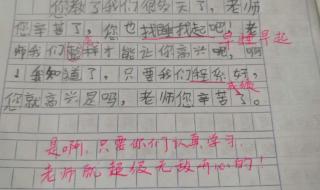 您教了我们很多天了，老师
您辛苦了，您也找睡找起吧！老
早睡早起
师我们怎样才能让你高兴呢，啊
！我知道了，只要我们好，
成绩
您就高兴是吗，老师您辛苦了。
是啊，只要你们认真学习，
老师就超级无敌开心的！